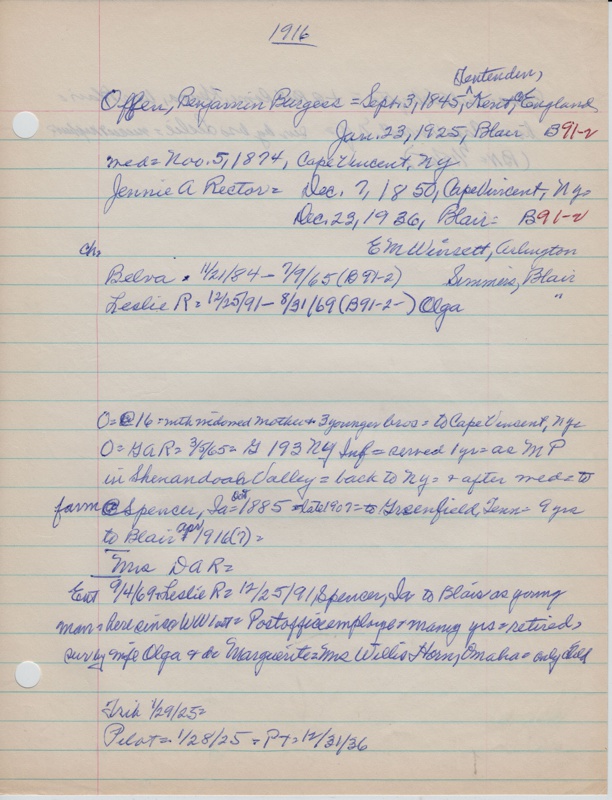 1916
Tentenden,
Offen, Benjamin Burgess = Sept. 3, 1845, Kent, England
Jan. 23, 1925, Blair B91-2
med = Nov. 5, 1874, Cape Vincent, Ny
Jennie A Rector = Dec. 7, 1850, Cape Vincent, Ny =
Dec. 23, 1936, Blair = B91-2
ch. E M Winsett, Arlington
Belva x 11/21/84 - 7/9/65 (B91-2) Simmers, Blair
Leslie R = 12/25/91 - 8/31/69 (B91-2-) Olga "
O = @ 16 = with widowed mother + 3 younger bros = to Cape Vincent, Ny =
O = GaR = 3/5/65 = G 193 NY Inf = served 1 yr = as MP
in Shenandoah Valley = back to Ny = + after med = to
farm @ Spencer, Ia = Oct 1885 = late 1907 = to Greenfield, Tenn = 9 yrs
to Blair Apr 1916(?) =
Mrs DAR =
Ent 9/4/69 = Leslie R = 12/25/91, Spencer, Ia to Blair as young
man = here since WW1 = Post office employe + many yrs = retired =
sur by wife Olga + da Marguerite = Mrs Willis Horn, Omaha = only child
Trib 1/29/25 =
Pilot = 1/28/25 = PT = 12/31/36